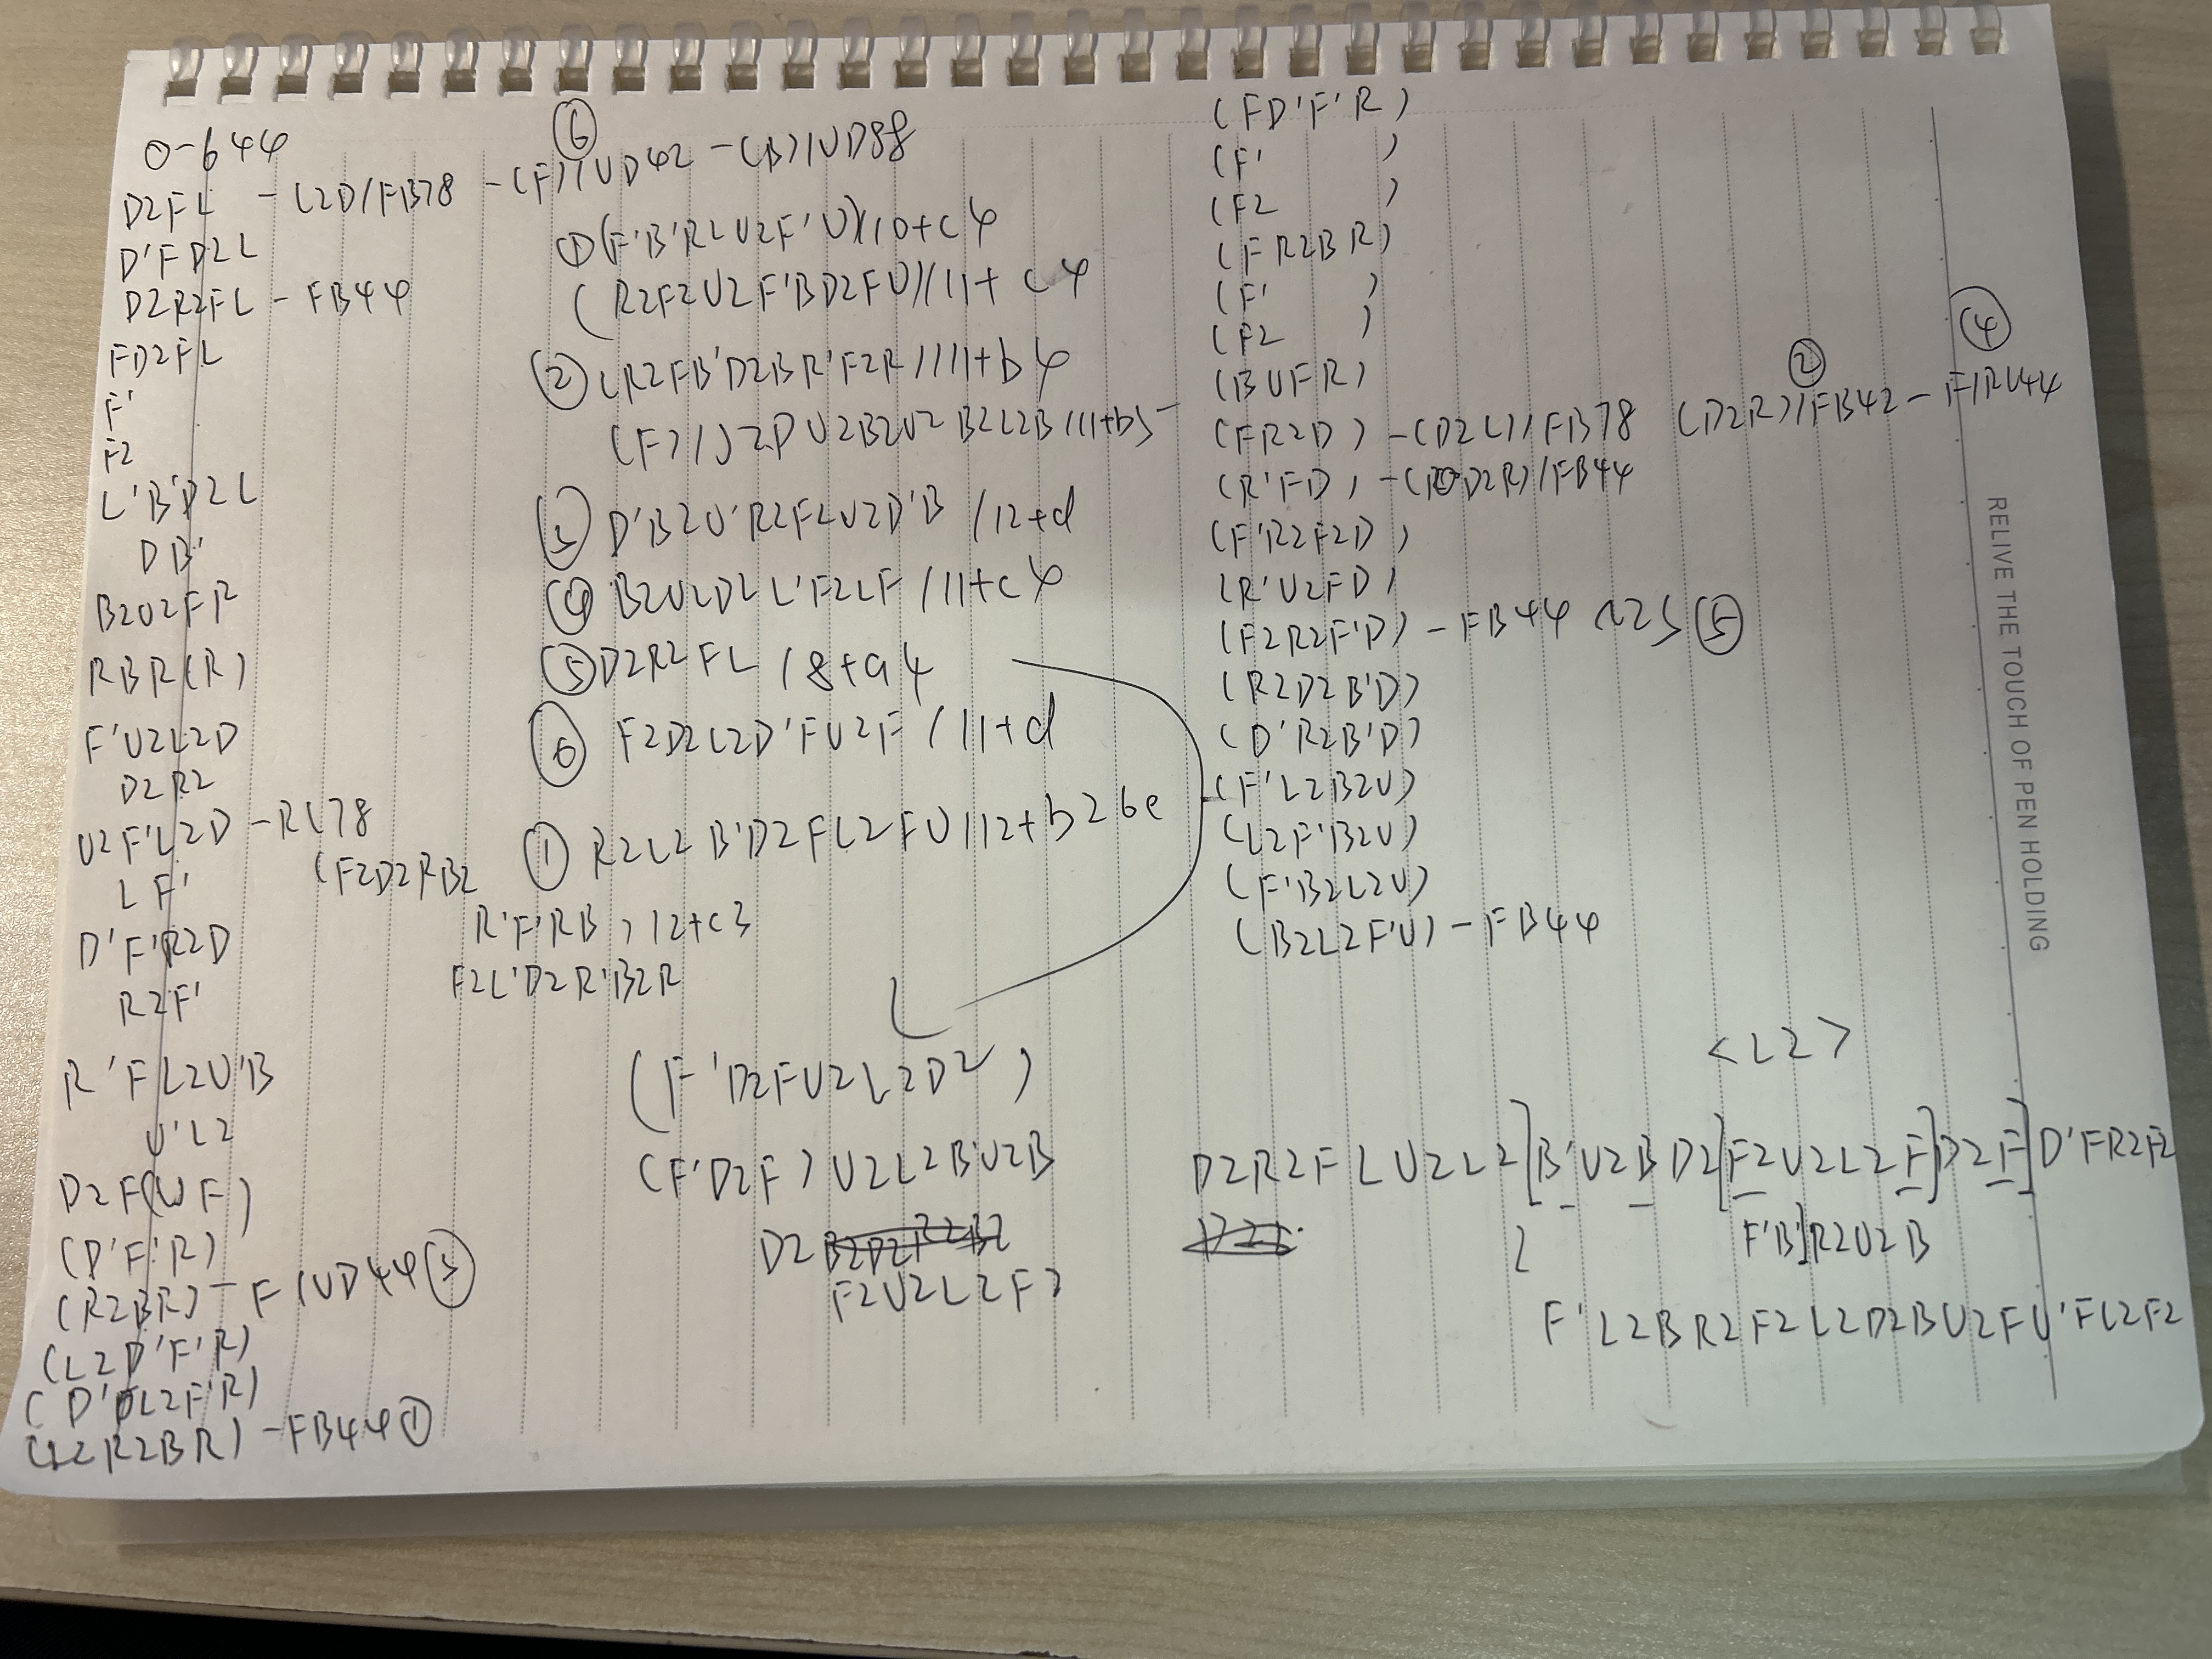 0-644
D2FL - (2D)/FB78 - (F)/UD42 - (B)/UD88 ⑥
D'FD2L
D2R2FL - FB44
FD2FL
F'
F2
L'B'D2L
DB'
B2U2FR
RBR(R)
F'U2L2D
D2R2
U2F'L2D - RL78
LF'
D'F'R2D
R2F'
R'FL2U'B
U'L2
D2F(UF)
(D'F'R)
(R2BR) - F/UD44 ③
(L2D'F'R)
(D'L2F'R)
(L2R2BR) - FB44 ①
① (F'B'R2U2F'U)/10+c4
(R2F2U2F'BD2FU)/11+c4
② (R2FB'D2BR'F2R/11+b4
U2B2U2B2L2B/11+b5
③ D'B2U'R2F2U2D'B/12+d
④ B2U2D2L'F2LF/11+c4
⑤ D2R2FL/8+a4
⑥ F2D2L2D'FU2F/11+d
① R2L2B'D2FL2FU/12+b26e
(F2D2RB2
R'F'RB)/12+c3
F2L'D2R'B2R
(F'D2FU2L2D2)
(F'D2F)U2L2B'U2B
D2
F2U2L2F2
(FD'F'R)
(F' )
(F2 )
(FR2BR)
(F' )
(F2 )
(BUFR)
(FR2D) - (D2L)/FB78 (D2R)/FB42 ② - F/RL44 ④
(R'FD) - (D2R)/FB44
(F'R2F2D)
(R'U2FD)
(F2R2F'D) - FB44 ⑤
(R2D2B'D)
(D'R2B'D)
(F'L2B2U)
(L2F'B2U)
(F'B2L2U)
(B2L2F'U) - FB44
<L2>
D2R2FLU2L2]B'U2BD2[F2U2L2F]D2F]D'FR2F2
F'B]R2U2B
F'L2BR2F2L2D2BU2FU'FL2F2
RELIVE THE TOUCH OF PEN HOLDING